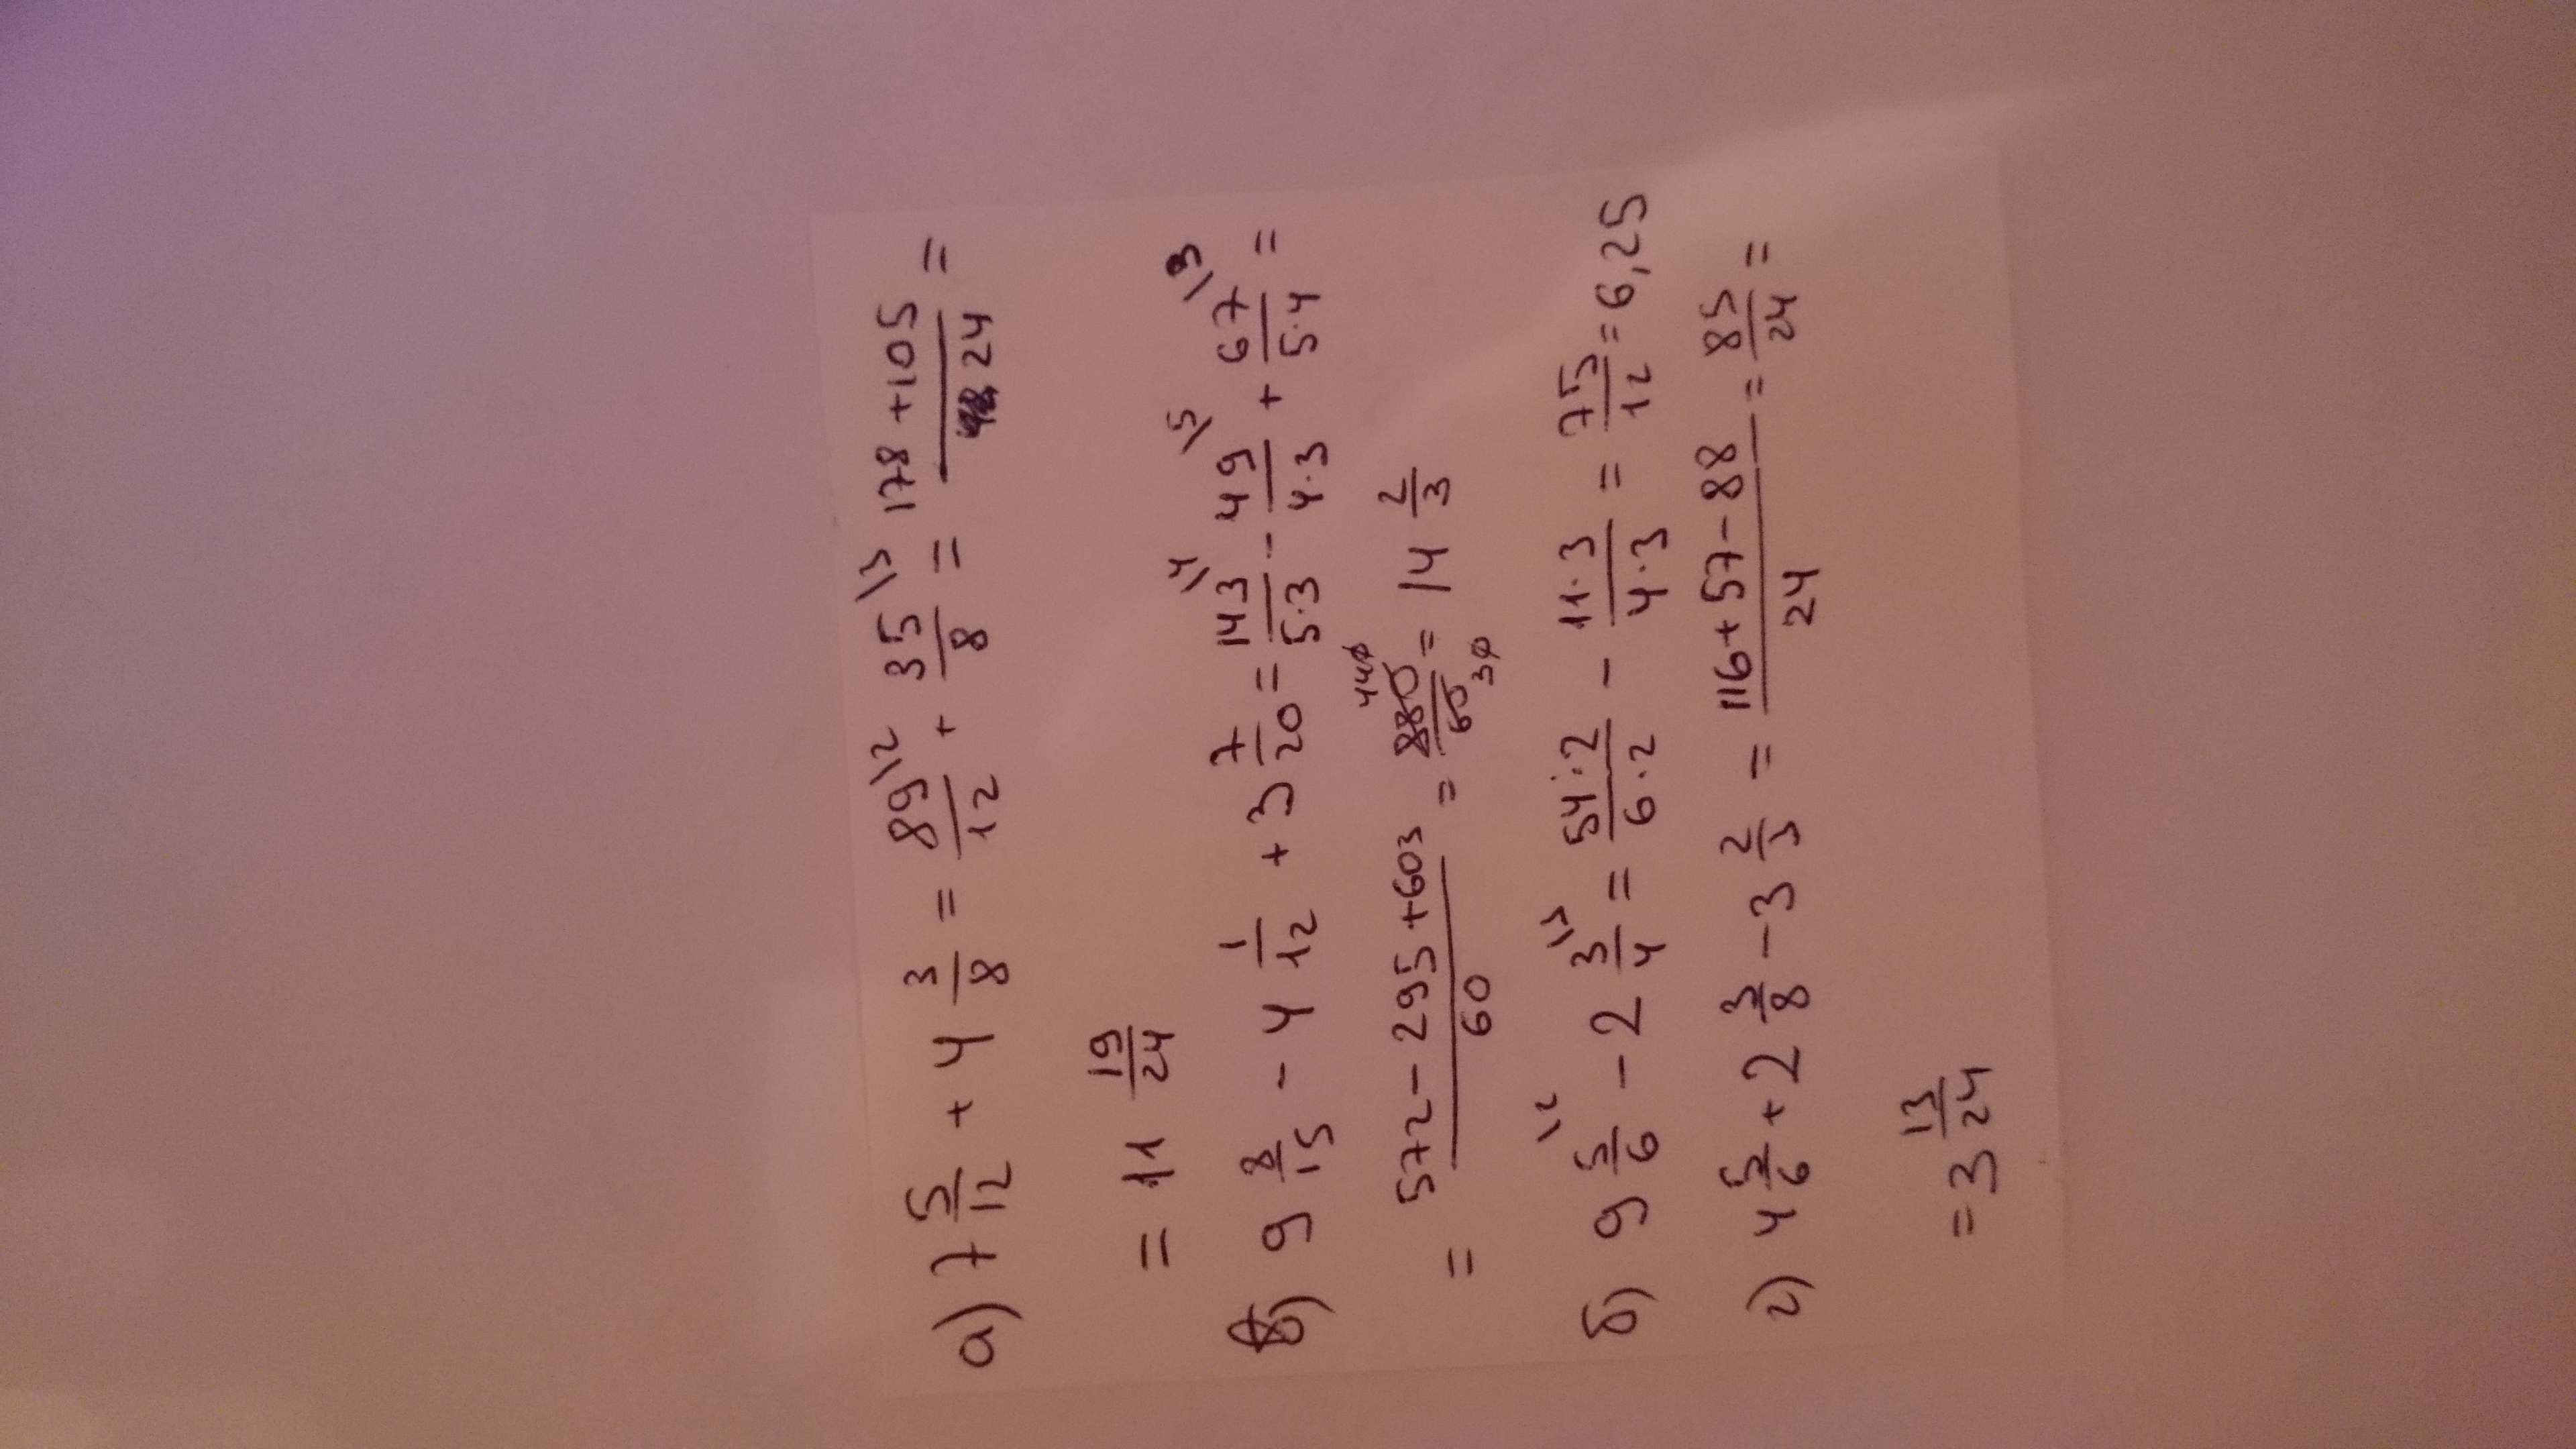 а) 7 5/12 + 4 3/8 = 89\2/12 + 35\3/8 = 178+105/24 =
= 11 19/24
в) 9 8/15 - 4 1/12 + 3 7/20 = 143\4/5·3 - 49\5/4·3 + 67\3/5·4 =
= 572-295+603/60 = 880/60 = 14 2/3
б) 9 5\2/6 - 2 3\3/4 = 54·2/6·2 - 11·3/4·3 = 75/12 = 6,25
г) 4 5/6 + 2 3/8 - 3 2/3 = 116+57-88/24 = 85/24 =
= 3 13/24